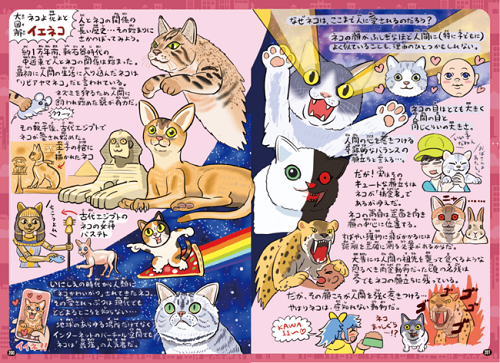 大図解
ネコよ花よと
イエネコ
人とネコの関係の
長い歴史…その始まりに
さかのぼってみよう。
約1万年前、新石器時代の
中近東で人とネコの関係は始まった。
最初に人間の生活に入り込んだネコは
「リビアヤマネコ」だと言われている。
ネズミを狩るため人間に
飼われ始めた説が有力だ。
その数千年後、古代エジプトで
ネコが愛され始めた。
王子の棺に
描かれたネコ
古代エジプトの
ネコの女神
バステト
いにしえの時代から人類に
ネコかわいがり、されてきたネコ。
その愛されっぷりは現代でも
とどまるところを知らない…
地球のあらゆる場所だけでなく
インターネットのバーチャル空間でも
ネコは「最強」の人気者だ。
なぜネコは、ここまで人に愛されるのだろう?
ネコの顔がふしぎなほど人間に(特に子どもに)
よく似ていることも、理由のひとつかもしれない。
ネコの目はとても大きく
人間の目と
同じくらいの大きさ。
人間の心を惹きつける
奇跡的なバランスの
顔立ちと言える…。
だが!実はその
キュートな顔立ちは
ネコが「捕食者」で
あるがゆえだ。
ネコの両目は正面を向き
顔の中心に位置する。
すばやい獲物に身をかがるには
距離を正確に測る必要があるからだ。
太古には人間の祖先を襲って食べるような
恐るべき肉食動物だった頃の名残は
今でもネコの顔立ちに残っている。
だが、その顔こそが人間を強く惹きつける…
やはりネコは、侮れない動物だ。
KAWA
ii〜♡
ネコ
まっしぐら